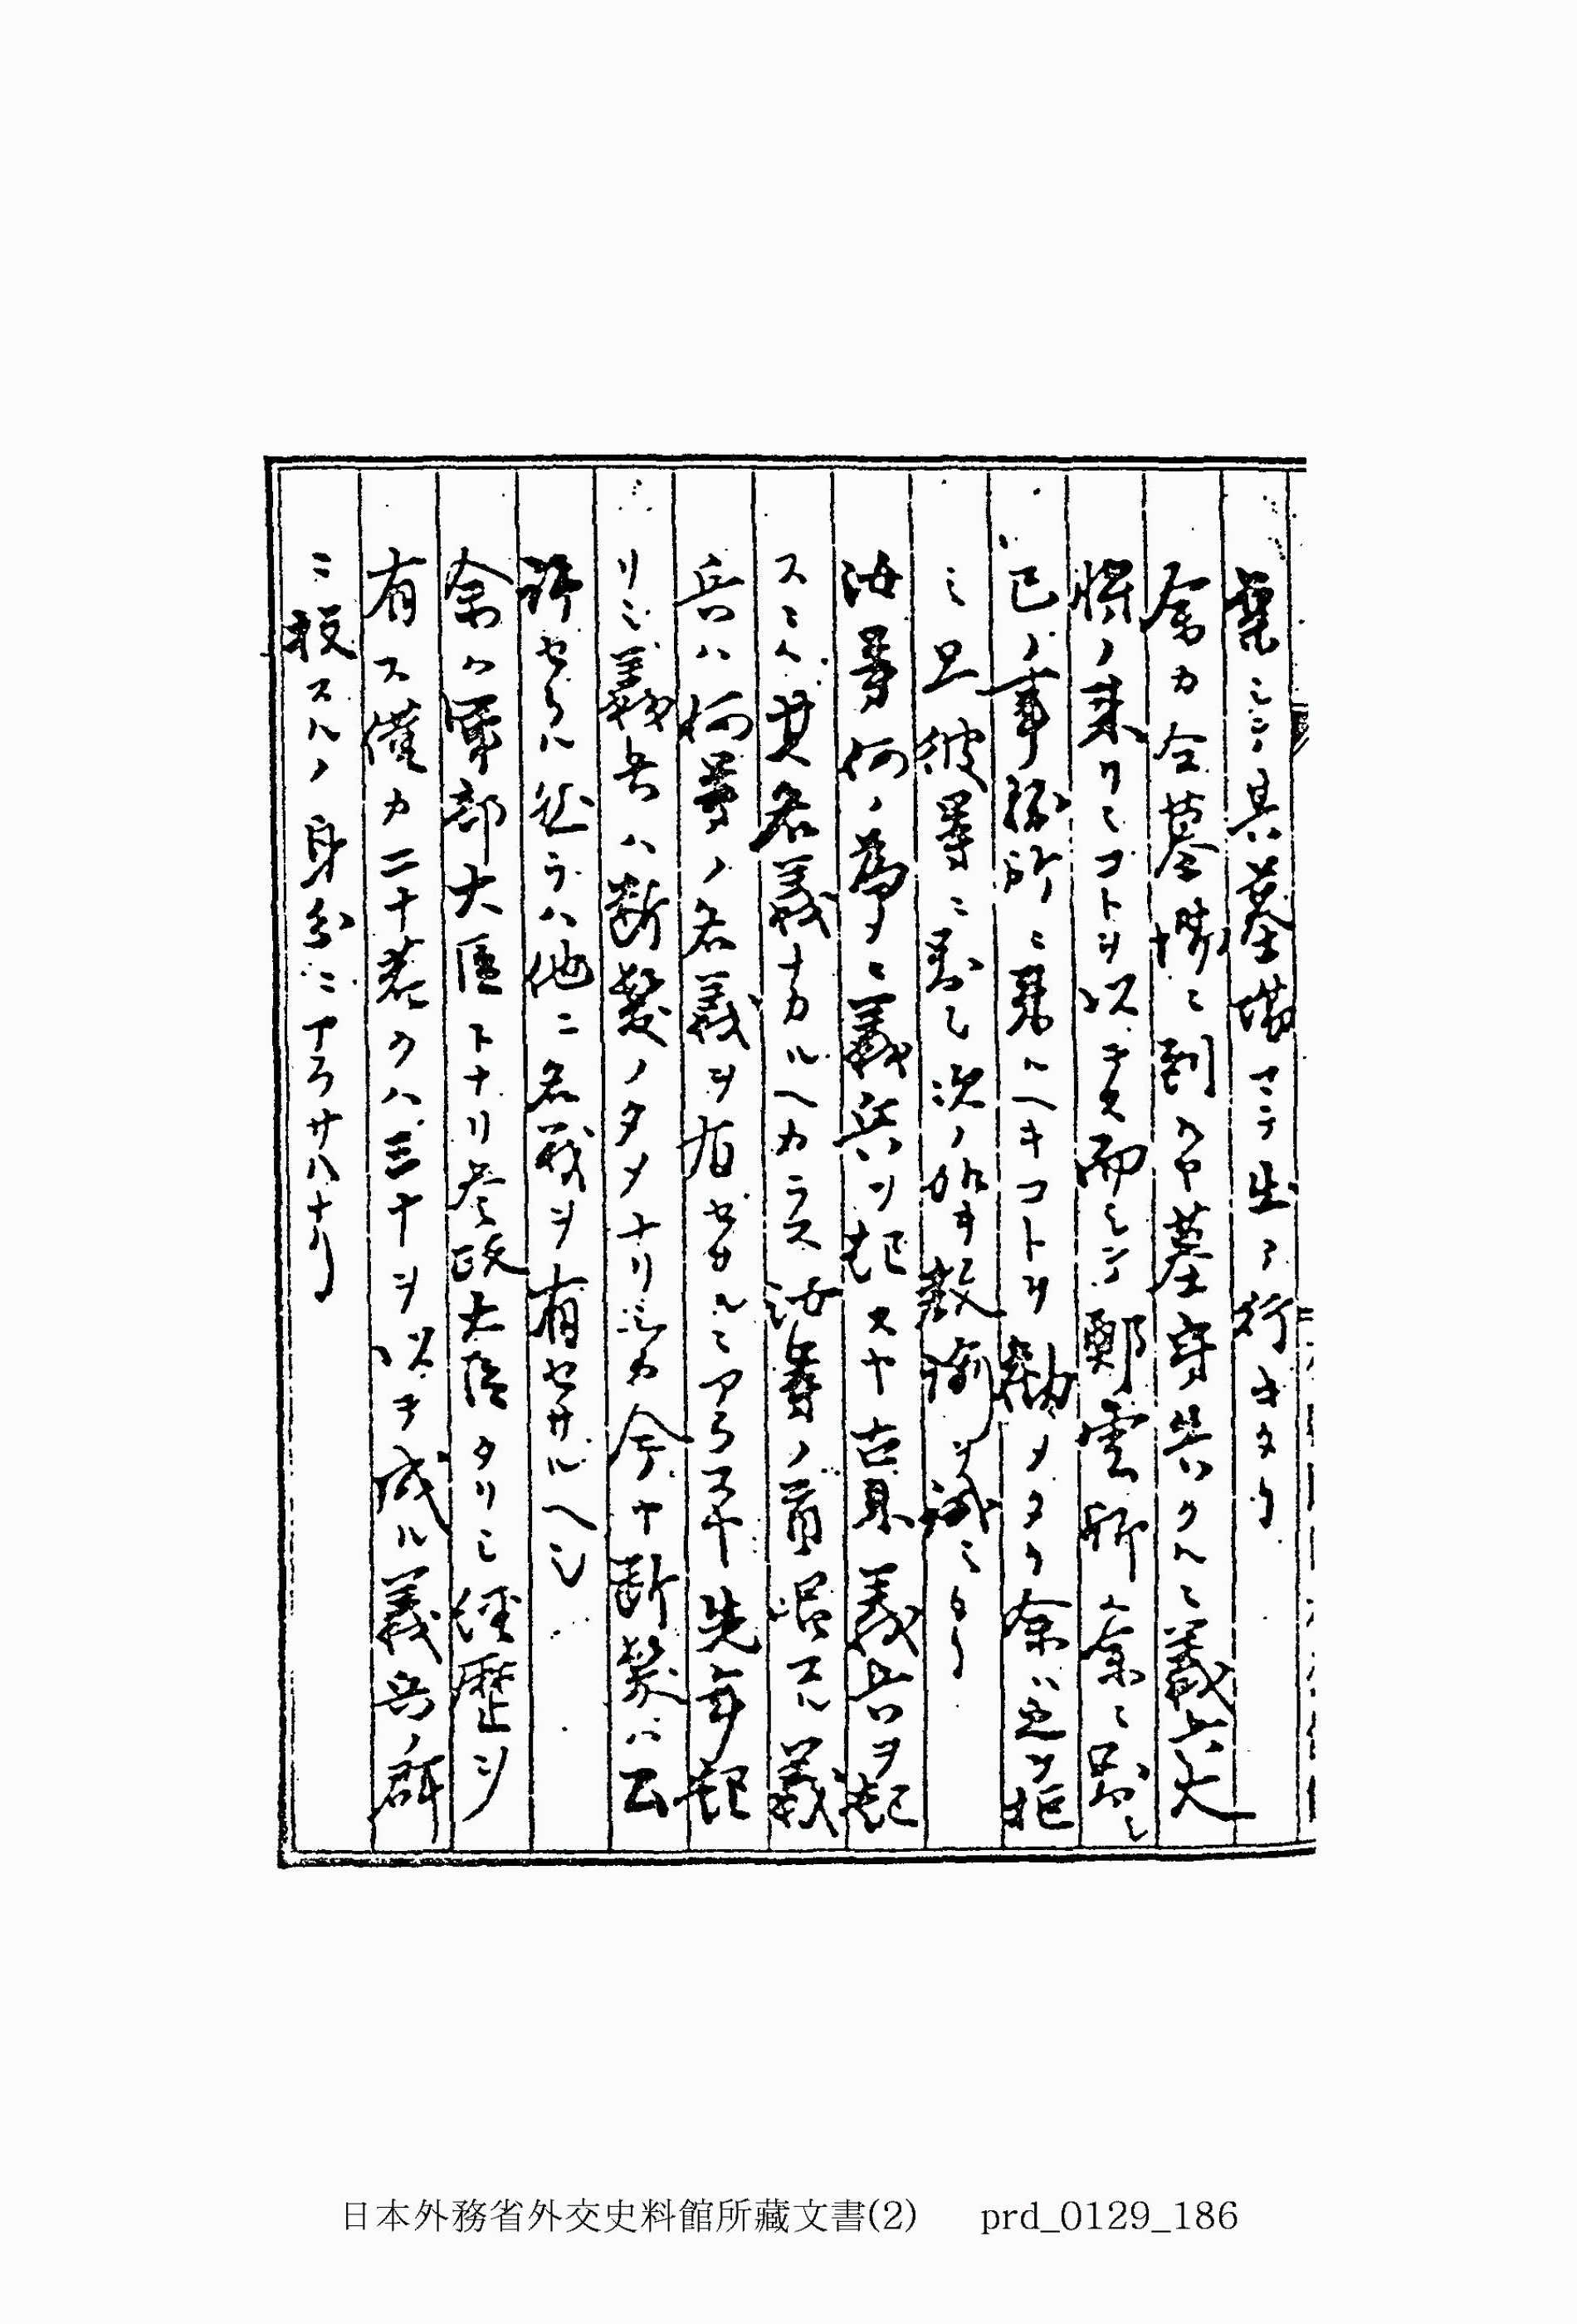 棄シ其墓地マテ出テ行キタリ
余カ全墓場ニ到ルヤ墓守告クルニ義兵大
将ノ来リシコトヲ以テス而シテ鄭雲 ハ余ニ対シ
已ノ事務所ニ来ルヘキコトヲ勧メタリ余ハ之ヲ拒
ミ且彼等ニ対シ次ノ如キ教諭ヲ試ミタリ
汝等何ノ為メニ義兵ヲ起スヤ古来義兵ヲ起
スニハ其名義ナカルヘカラス汝等ノ首唱スル義
兵ハ何等ノ名義ヲ有セサルニアラスヤ先年起
リシ義兵ハ断髪ノタメナリシカ今ヤ断髪ハ公
許セラル然ラハ他ニ名義ヲ有セサルヘシ
余ハ軍部大臣トナリ参政大臣タリシ経歴ヲ
有ス僅カ二十若クハ三十ヲ以テ成ル義兵ノ群
ニ投スルノ身分ニアラサルナリ
日本外務省外交史料館所藏文書(2) prd_0129_186